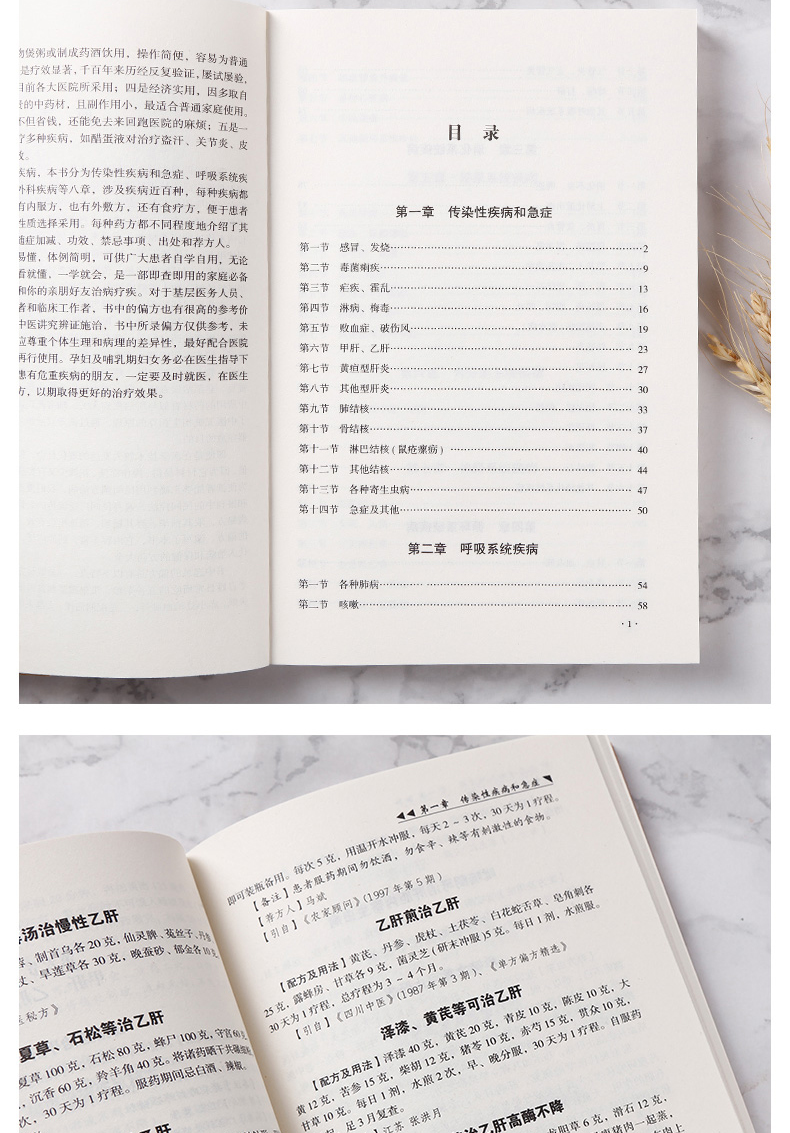 物煲粥或制成药酒饮用，操作简便，容易为普通
是疗效显著，千百年来历经反复验证，屡试屡验，
目前各大医院所采用；四是经济实用，因多取自
的中药材，且副作用小，最适合普通家庭使用。
不但省钱，还能免去来回跑医院的麻烦；五是一
疗多种疾病，如醋蛋液对治疗盗汗、关节炎、皮
效。
疾病，本书分为传染性疾病和急症、呼吸系统疾
外科疾病等八章，涉及疾病近百种，每种疾病都
有内服方，也有外敷方，还有食疗方，便于患者
性质选择采用。每种药方都不同程度地介绍了其
随症加减、功效、禁忌事项、出处和荐方人。
易懂，体例简明，可供广大患者自学自用，无论
看就懂，一学就会，是一部即查即用的家庭必备
和你的亲朋好友治病疗疾。对于基层医务人员、
者和临床工作者，书中的偏方也有很高的参考价
中医讲究辨证施治，书中所录偏方仅供参考，未
应尊重个体生理和病理的差异性，最好配合医院
再行使用。孕妇及哺乳期妇女务必在医生指导下
患有危重疾病的朋友，一定要及时就医，在医生
方，以期取得更好的治疗效果。
目 录
第一章 传染性疾病和急症
第一节 感冒、发烧……2
第二节 毒菌痢疾……9
第三节 疟疾、霍乱……13
第四节 淋病、梅毒……16
第五节 败血症、破伤风……19
第六节 甲肝、乙肝……23
第七节 黄疸型肝炎……27
第八节 其他型肝炎……30
第九节 肺结核……33
第十节 骨结核……37
第十一节 淋巴结核(鼠疮瘰疬)……40
第十二节 其他结核……44
第十三节 各种寄生虫病……47
第十四节 急症及其他……50
第二章 呼吸系统疾病
第一节 各种肺病……54
第二节 咳嗽……58
·1·
汤治慢性乙肝
、制首乌各20克，仙灵脾、菟丝子、丹参、
、旱莲草各30克，晚蚕砂、郁金各10克
医秘方》
夏草、石松等治乙肝
夏草100克，石松80克，蜂尸100克，守宫60克
，沉香60克，羚羊角40克。将诸药晒干共碾细
，30天为1疗程。服药期间忌白酒、辣椒、
治乙肝
◀◀第一章 传染性疾病和急症
即可装瓶备用。每次5克，用温开水冲服，每天2～3次，30天为1疗程。
【备注】患者服药期间勿饮酒，勿食辛、辣等有刺激性的食物。
【荐方人】马斌
【引自】《农家顾问》(1997年第5期)
乙肝煎治乙肝
【配方及用法】黄芪、丹参、虎杖、土茯苓、白花蛇舌草、皂角刺各
25克，露蜂房、甘草各9克，南灵芝(研末冲服)5克。每日1剂，水煎服。
30天为1疗程，总疗程为3～4个月。
【引自】《四川中医》(1987年第3期)、《单方偏方精选》
泽漆、黄芪等可治乙肝
【配方及用法】泽漆40克，黄芪20克，青皮10克，陈皮10克，大
黄12克，苦参15克，柴胡12克，猪苓10克，赤芍15克，贯众10克，
甘草10克。每日1剂，水煎2次，早、晚分服，30天为1疗程。自服药
起，足3月复查。
江苏 张洪月
治乙肝高酶不降
龙胆草6克，滑石12克，